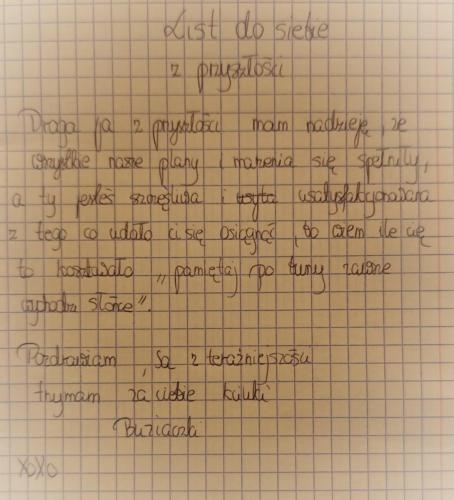 List do siebie
z przyszłości
Droga ja z przyszłości mam nadzieję, że
wszystkie nasze plany i marzenia się spełniły,
a ty jesteś szczęśliwa i usatysfakcjonowana
z tego co udało ci się osiągnąć, bo wiem ile cię
to kosztowało „pamiętaj po burzy zawsze
wychodzi słońce”.
Pozdrawiam, Ja z teraźniejszości
trzymam za ciebie kciuki
Buziaczki
XOXO